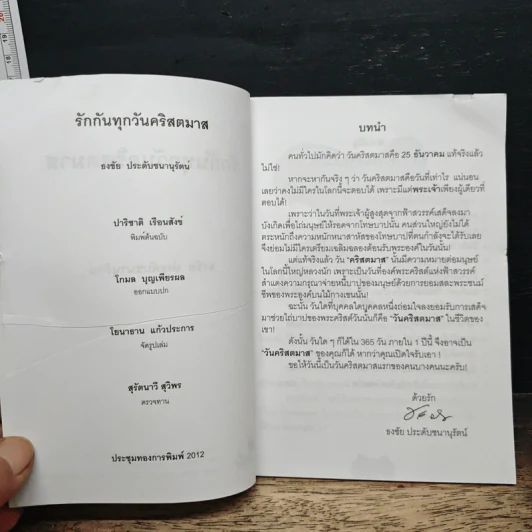 รักกันทุกวันคริสตมาส
ธงชัย ประดับชนานุรัตน์
ปาริชาติ เรือนสังข์
พิมพ์ต้นฉบับ
โกมล บุญเพียรผล
ออกแบบปก
โยนาธาน แก้วประการ
จัดรูปเล่ม
สุรัตนาวี สุวิพร
ตรวจทาน
ประชุมทองการพิมพ์ 2012
บทนำ
คนทั่วไปมักคิดว่า วันคริสตมาสคือ 25 ธันวาคม แท้จริงแล้ว
ไม่ใช่!
หากจะหากันจริง ๆ ว่า วันคริสตมาสคือวันที่เท่าไร แน่นอน
เลยว่าคงไม่มีใครในโลกนี้จะตอบได้ เพราะมีแต่พระเจ้าเพียงผู้เดียวที่
ตอบได้!
เพราะว่าในวันที่พระเจ้าผู้สูงสุดจากฟ้าสวรรค์เสด็จลงมา
บังเกิดเพื่อไถ่มนุษย์ให้รอดจากโทษบาปนั้น คนส่วนใหญ่ยังไม่ได้
ตระหนักถึงความหนักหนาสาหัสของโทษบาปที่ตนกำลังจะได้รับเลย
จึงย่อมไม่มีใครเตรียมเฉลิมฉลองต้อนรับพระองค์ในวันนั้น!
แต่แท้จริงแล้ว วัน "คริสตมาส" นั้นมีความหมายต่อมนุษย์
ในโลกนี้ใหญ่หลวงนัก เพราะเป็นวันที่องค์พระคริสต์แห่งฟ้าสวรรค์
สำแดงความกรุณาจ่ายหนี้บาปของมนุษย์ด้วยการยอมสละพระชนม์
ชีพของพระองค์บนไม้กางเขนนั้น!
ฉะนั้น วันใดที่บุคคลใดบุคคลหนึ่งถ่อมใจลงยอมรับการเสด็จ
มาช่วยไถ่บาปของพระคริสต์วันนั้นก็คือ "วันคริสตมาส" ในชีวิตของ
เขา!
ดังนั้น วันใด ๆ ก็ได้ใน 365 วัน ภายใน 1 ปีนี้ จึงอาจเป็น
"วันคริสตมาส" ของคุณก็ได้ หากว่าคุณเปิดใจรับเอา !
ขอให้วันนี้เป็นวันคริสตมาสแรกของคนบางคนนะครับ!
ด้วยรัก
ธงชัย ประดับชนานุรัตน์